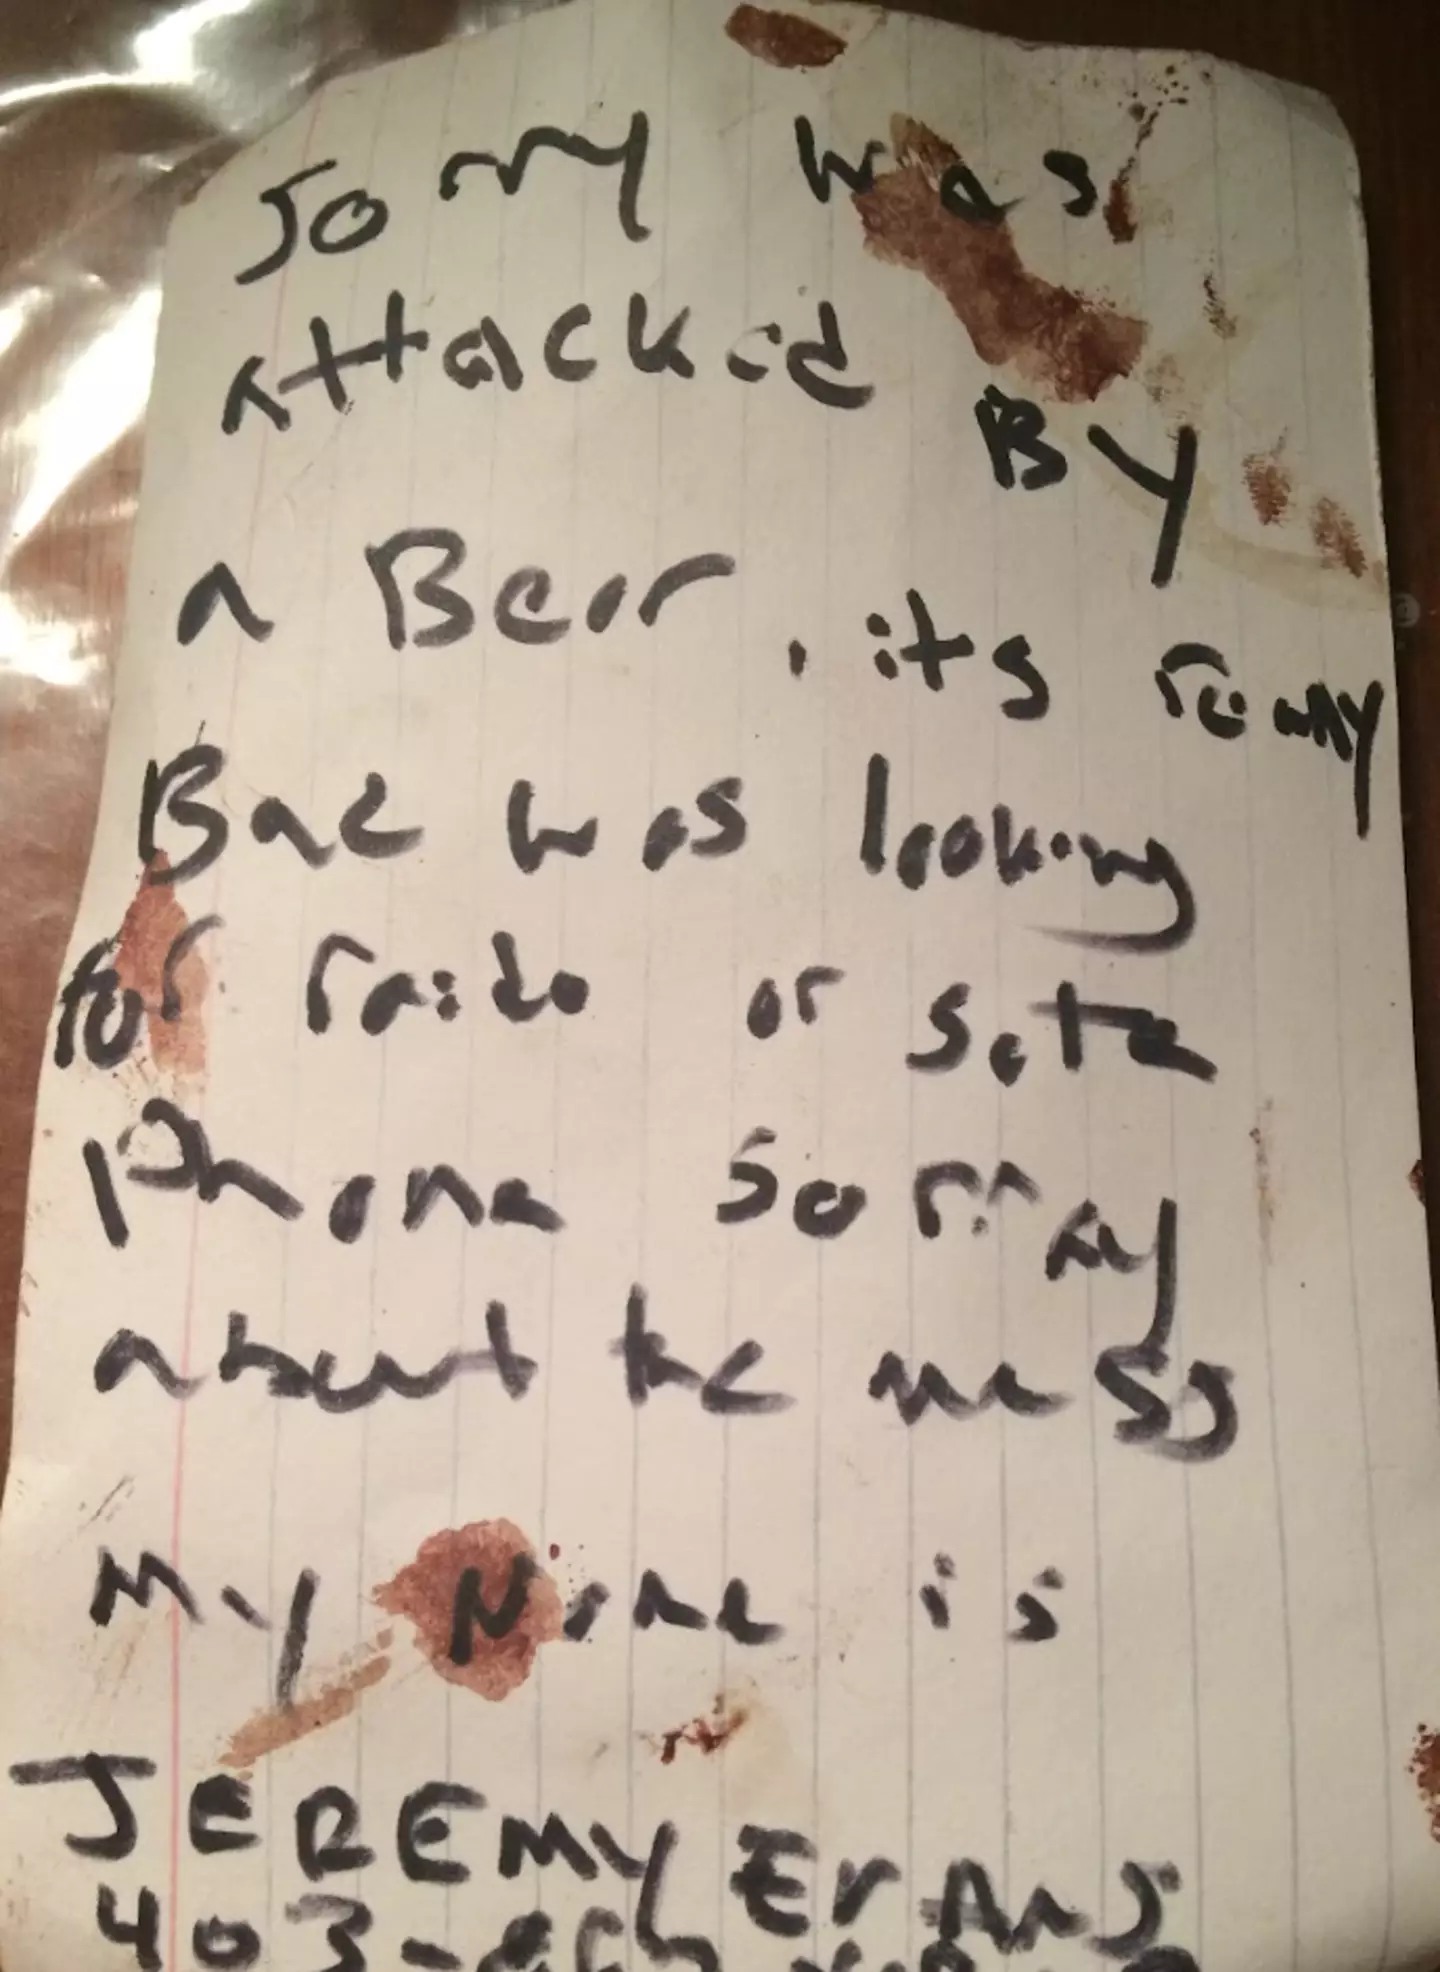 Sorry was
attacked BY
a Bear, its really
Bad was looking
for raido or sata
Phone sorry
about the mess
My Name is
JEREMY EVANS
403-